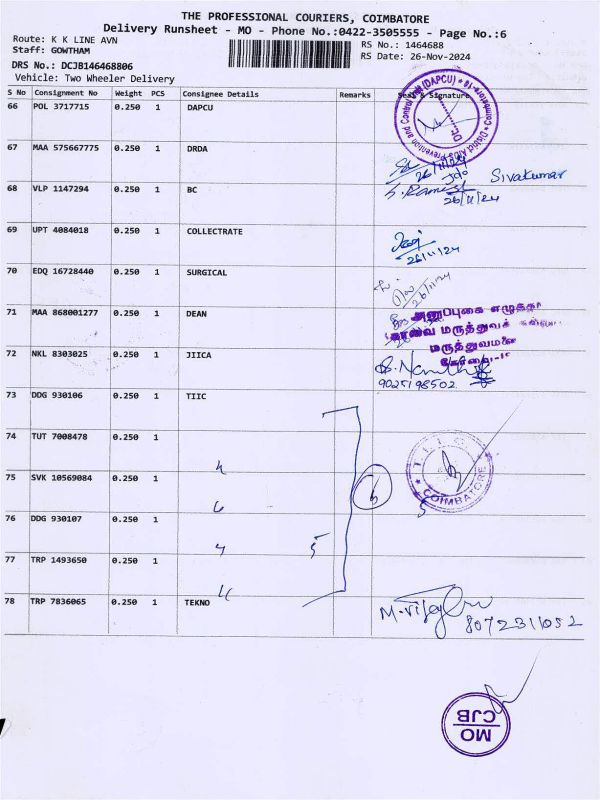 THE PROFESSIONAL COURIERS, COIMBATORE
Delivery Runsheet - MO - Phone No.:0422-3505555 - Page No.:6
Route: K K LINE AVN
RS No.: 1464688
Staff: GOWTHAM
RS Date: 26-Nov-2024
DRS No.: DCJB146468806
Vehicle: Two Wheeler Delivery
S No Consignment No Weight PCS Consignee Details Remarks Seal & Signature
66 POL 3717715 0.250 1 DAPCU
District AIDS Prevention and Control Unit (DAPCU) * Coimbatore-18
67 MAA 575667775 0.250 1 DRDA
26/11/24
Sivakumar
68 VLP 1147294 0.250 1 BC
S. Ramesh
26/11/24
69 UPT 4084018 0.250 1 COLLECTRATE
26/11/24
70 EDQ 16728440 0.250 1 SURGICAL
26/11/24
71 MAA 868001277 0.250 1 DEAN
அனுப்புகை எழுத்தர்
கோவை மருத்துவக்
மருத்துவமனை
72 NKL 8303025 0.250 1 JIICA
9025198502
73 DDG 930106 0.250 1 TIIC
74 TUT 7008478 0.250 1
TIIC
COIMBATORE
75 SVK 10569084 0.250 1
76 DDG 930107 0.250 1
5
77 TRP 1493650 0.250 1
78 TRP 7836065 0.250 1 TEKNO
8072311052
MO
CJB